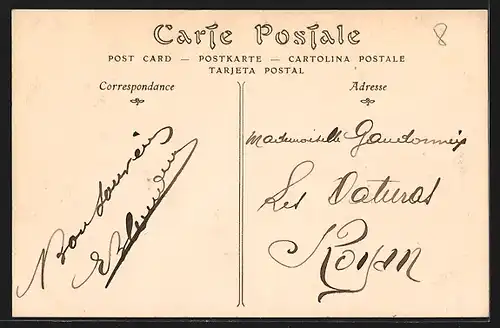 Carte Postale
8
POST CARD — POSTKARTE — CARTOLINA POSTALE
TARJETA POSTAL
Correspondance
Adresse
Bon Souvenir
Mademoiselle
Les Daturas
Royan